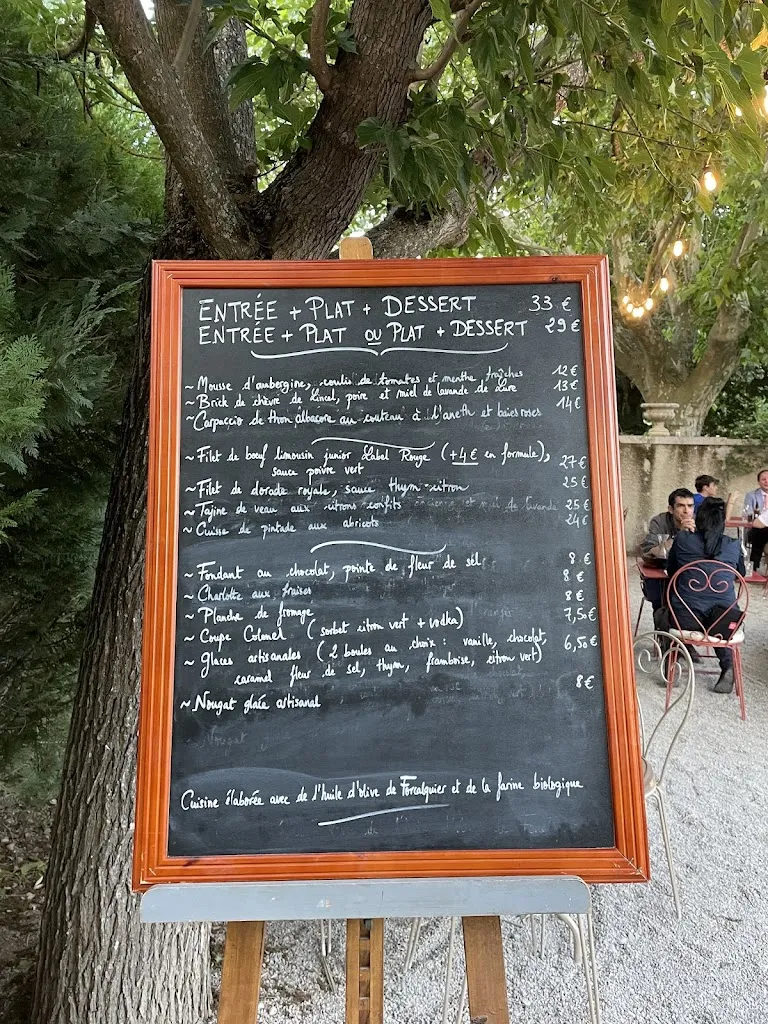 ENTRÉE + PLAT + DESSERT 33 €
ENTRÉE + PLAT OU PLAT + DESSERT 29 €
~ Mousse d'aubergine, coulis de tomates et menthe fraîches 12€
~ Brick de chèvre de Lincel, poire et miel de lavande de Lure 13€
~ Carpaccio de thon albacore au couteau à l'aneth et baies roses 14€
~ Filet de bœuf limousin junior Label Rouge (+4€ en formule), 27€
sauce poivre vert
~ Filet de dorade royale, sauce thym-citron 25€
~ Tajine de veau aux citrons confits 25€
~ Cuisse de pintade aux abricots 24€
~ Fondant au chocolat, pointe de fleur de sel 8 €
~ Charlotte aux fraises 8 €
~ Planche de fromage 8€
~ Coupe Colonel (sorbet citron vert + vodka) 7,50€
~ Glaces artisanales (2 boules au choix : vanille, chocolat, 6,50€
caramel fleur de sel, thym, framboise, citron vert)
~ Nougat glacé artisanal 8€
Nougat
Cuisine élaborée avec de l'huile d'olive de Forcalquier et de la farine biologique